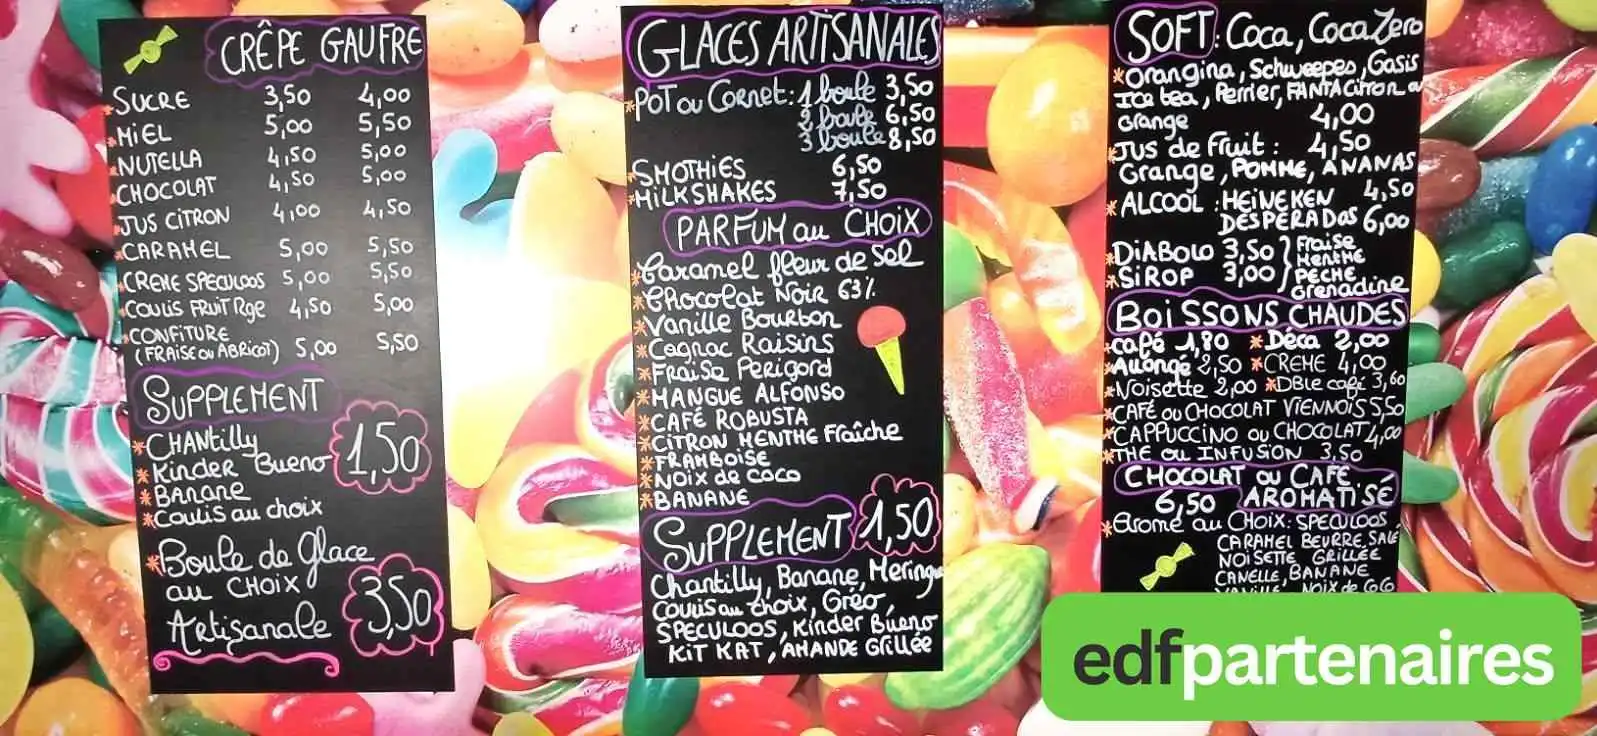 CRÊPE GAUFRE
SUCRE 3,50 4,00
MiEL 5,00 5,50
NUTELLA 4,50 5,00
CHOCOLAT 4,50 5,00
JUS CiTRON 4,00 4,50
CARAMEL 5,00 5,50
CREME SPECULOOS 5,00 5,50
COULIS FRUIT Rge 4,50 5,00
CONFiTURE
(FRAISE ou ABRICOT) 5,00 5,50
SUPPLEMENT
CHANtilly 1,50
Kinder Bueno
BANANE
Coulis au choix
Boule de Glace
au CHOIX
Artisanale 3,50
GLACES ARTiSANALES
POT ou Cornet: 1 boule 3,50
2 boule 6,50
3 boule 8,50
SMOTHiES 6,50
MiLKSHAKES 7,50
PARFUM au CHOIX
Caramel fleur de Sel
Chocolat Noir 63%
Vanille Bourbon
Cognac Raisins
FRaiSe PERIGORD
MANGUE ALFONSO
CAFÉ ROBUSTA
CiTRON MENTHE Fraîche
FRAMBOISE
NOix de Coco
BANANE
SUPPLEMENT 1,50
Chantilly, Banane, Meringue
Coulis au choix, Oréo,
SPECULOOS, Kinder Bueno
KiT KAT, AMANDE GRillée
SOFT: Coca, Coca Zero
Orangina, Schweepes, Oasis
Ice tea, Perrier, FANTA Citron ou
Orange 4,00
Jus de Fruit: 4,50
Orange, POMME, ANANAS
ALCOOL: HEiNEKEN 4,50
DESPERADOS 6,00
DiABOLO 3,50 Fraise
Menthe
SiROP 3,00 PECHE
Grenadine
BOiSSONS CHAUDES
Café 1,80 Déca 2,00
Allongé 2,50 CREME 4,00
Noisette 2,00 DBle café 3,60
CAFÉ ou CHOCOLAT VIENNOIS 5,50
CAPPUCCINO OU CHOCOLAT 4,00
THE OU INFUSION 3,50
CHOCOLAT ou CAFE
6,50 AROMATISÉ
Arome au Choix: SPECULOOS
CARAMEL BEURRE SALÉ
NOISETTE GRILLÉE
CANELLE, BANANE
VANILLE Noix de Coco
edfpartenaires